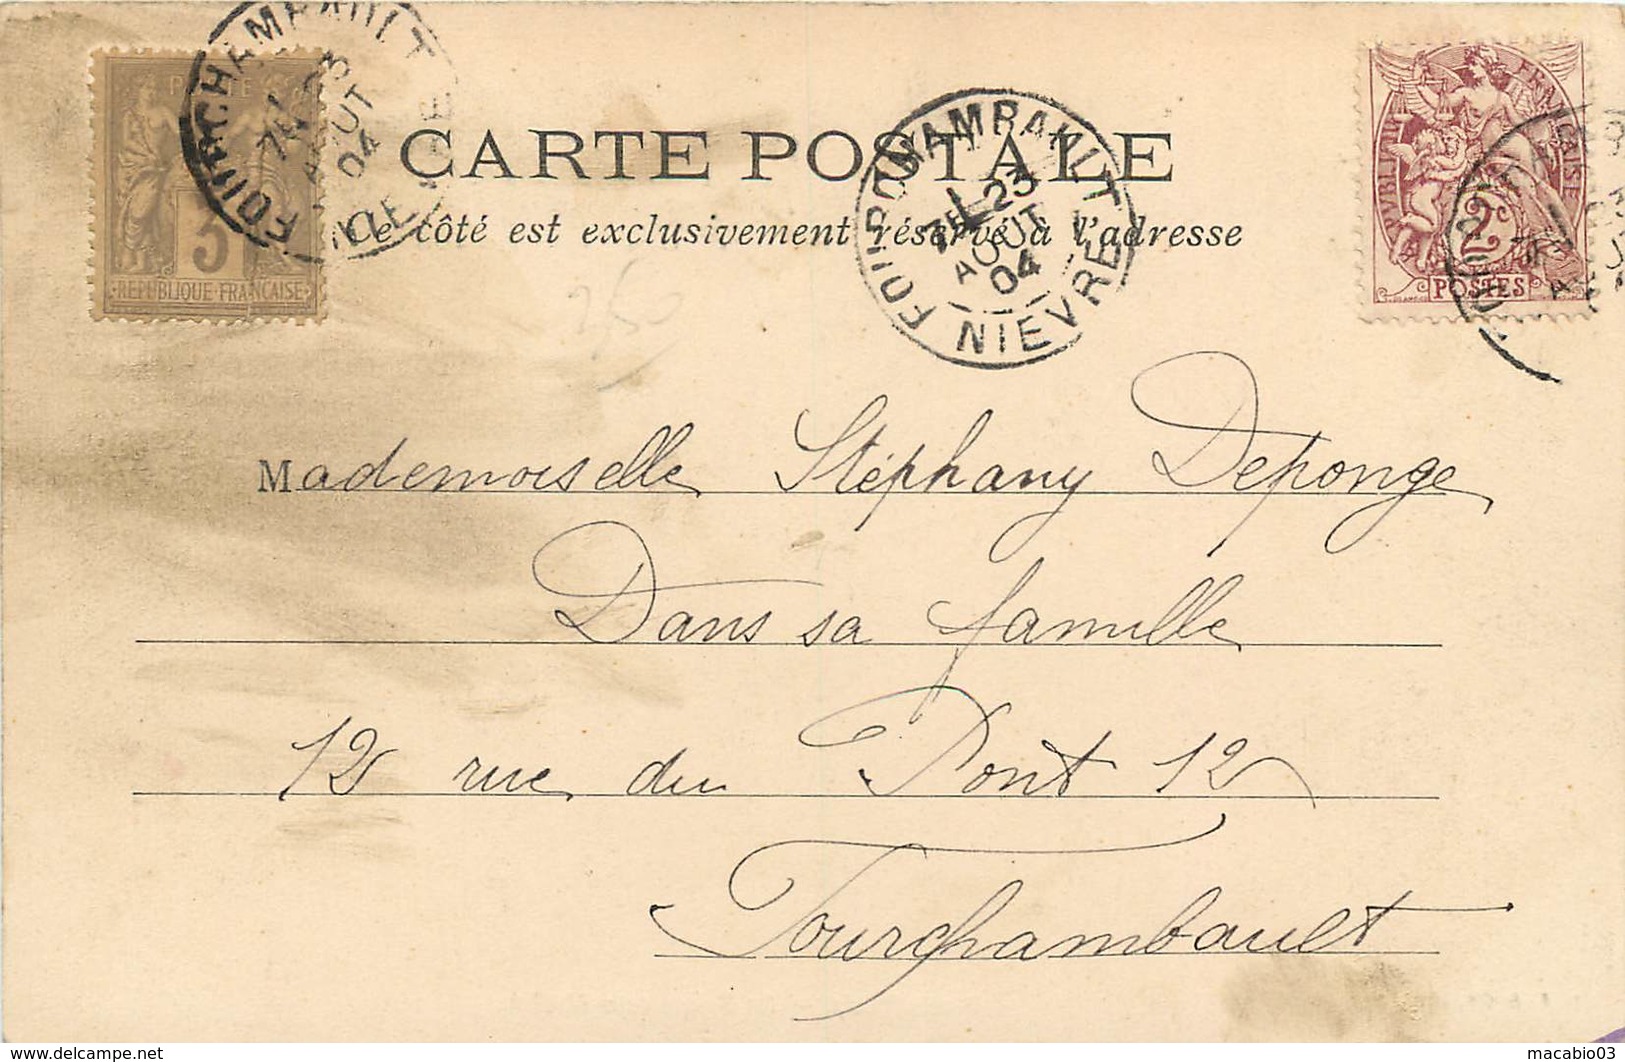 FOURCHAMBAULT
7E 23
AOUT
04
NIEVRE
3
REPUBLIQUE FRANÇAISE
CARTE POSTALE
Ce côté est exclusivement réservé à l'adresse
FOURCHAMBAULT
7E 23
AOUT
04
NIEVRE
REPVBLIQVE FRANÇAISE
2c
POSTES
250
Mademoiselle Stéphany Deponge
Dans sa famille
12 rue du Pont 12
Fourchambault
www.delcampe.net
macabio03